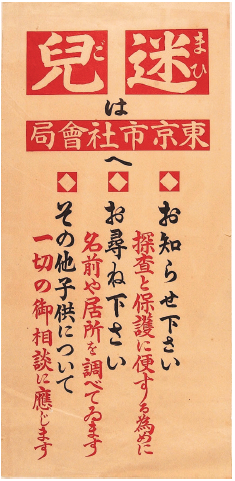 迷兒
まひご
は
東京市社會局
へ
お知らせ下さい
探査と保護に便する為めに
お尋ね下さい
名前や居所を調べてゐます
その他子供について
一切の御相談に應じます